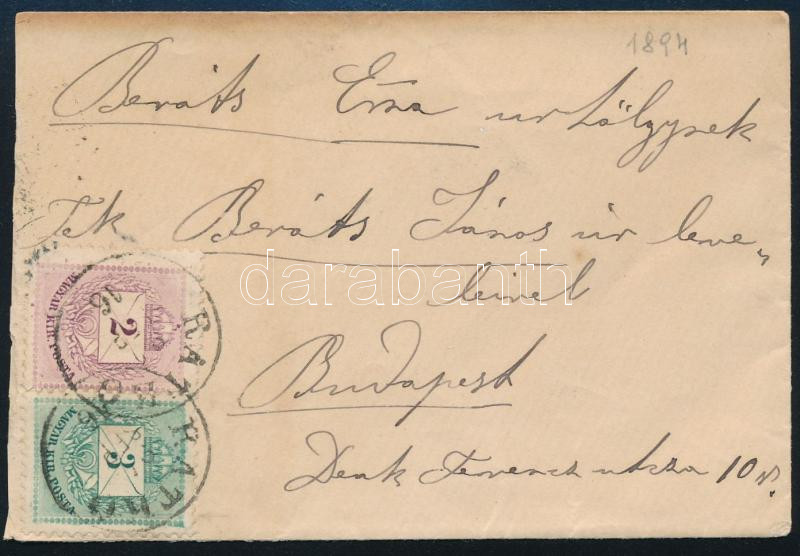 1894
Beráts Erna urhölgynek
Tek Beráts János úr leve„
leivel
Budapest
Deák Ferencz utcza 10
darabanth
MAGYAR KIR. POSTA
2
MAGYAR KIR. POSTA
3
RÁT
RÁTH